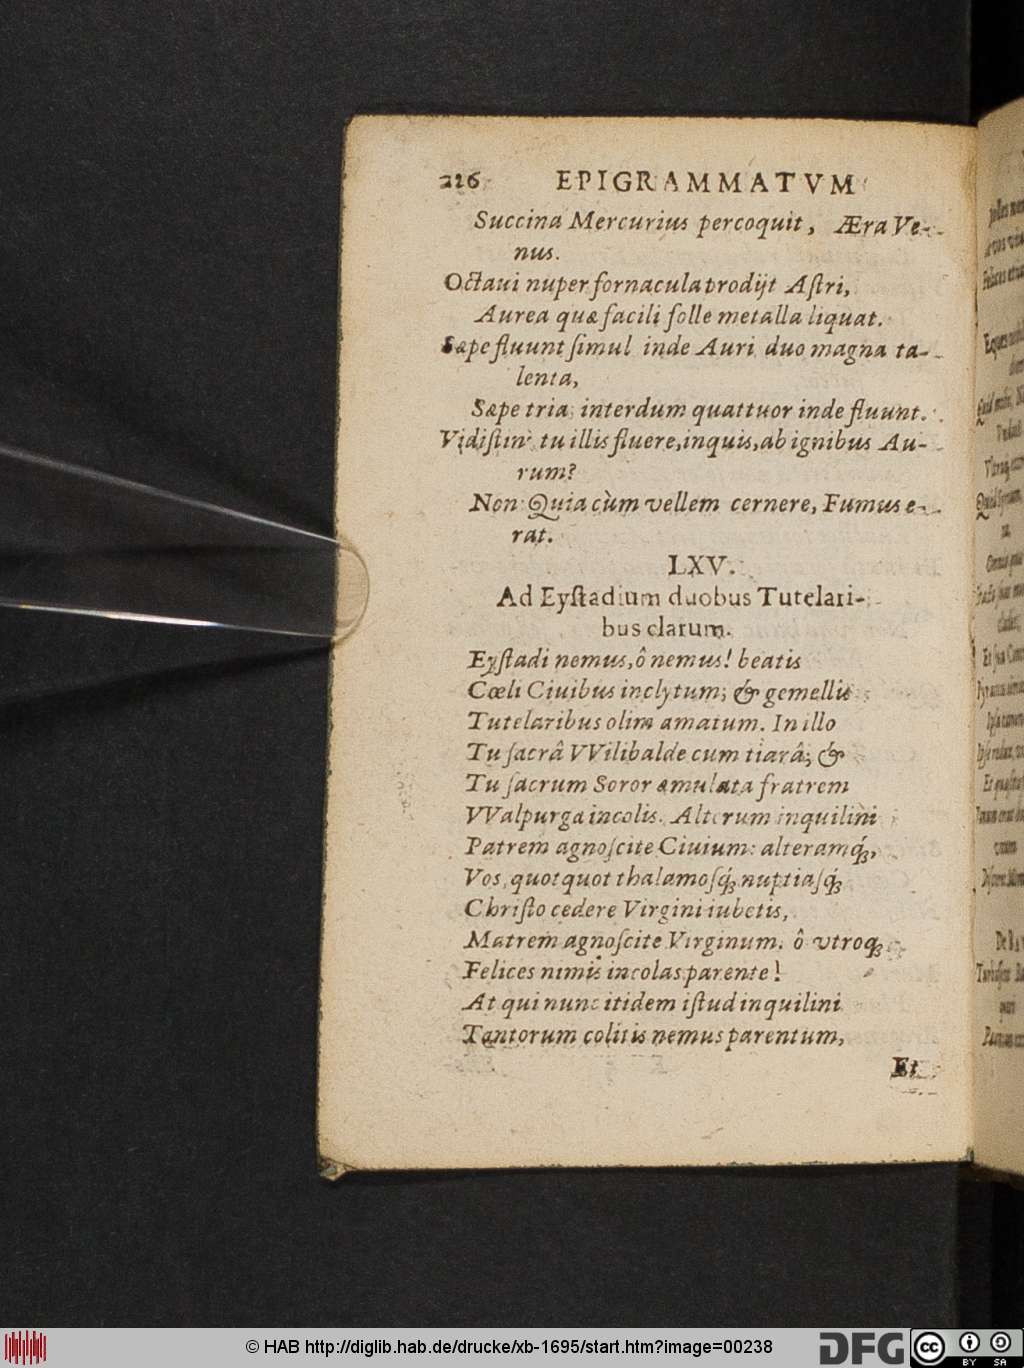 226 EPIGRAMMATVM
Succina Mercurius percoquit, Æra Ve-
nus.
Octaui nuper fornacula prodijt Aſtri,
Aurea quæ facili folle metalla liquat.
Sæpe fluunt ſimul inde Auri duo magna ta-
lenta,
Sæpe tria, interdum quattuor inde fluunt.
Vidiſtin' tu illis fluere, inquis, ab ignibus Au-
rum?
Non: Quia cùm vellem cernere, Fumus e-
rat.
LXV.
Ad Eyſtadium duobus Tutelari-
bus clarum.
Eyſtadi nemus, ô nemus! beatis
Cœli Ciuibus inclytum; & gemellis
Tutelaribus olim amatum. In illo
Tu ſacrâ VVilibalde cum tiarâ; &
Tu ſacrum Soror æmulata fratrem
VValpurga incolis. Alterum inquilini
Patrem agnoſcite Ciuium: alteramq́;,
Vos, quotquot thalamoſq́; nuptiaſq́;
Chriſto cedere Virgini iubetis,
Matrem agnoſcite Virginum. ô vtroq;
Felices nimis incolas parente!
At qui nunc itidem iſtud inquilini
Tantorum colitis nemus parentum,
Et
© HAB http://diglib.hab.de/drucke/xb-1695/start.htm?image=00238
DFG
cc BY SA